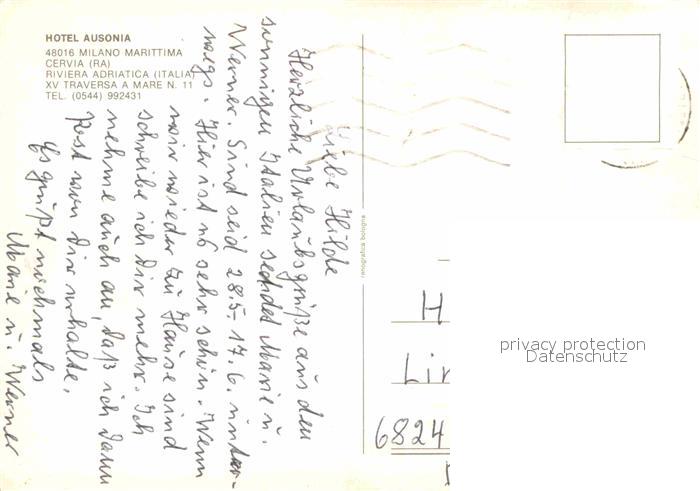 HOTEL AUSONIA
48016 MILANO MARITTIMA
CERVIA (RA)
RIVIERA ADRIATICA (ITALIA)
XV TRAVERSA A MARE N. 11
TEL. (0544) 992431
Liebe Hilde
Herzliche Urlaubsgrüße aus den
sonnigen Italien sendet Marie u.
Werner. Sind seid 28.5.-17.6. unter-
wegs. Hier ist es sehr schön. Wenn
wir wieder zu Hause sind
schreibe ich Dir mehr. Ich
nehme auch an, daß ich dann
Post von Dir erhalte.
Es grüßt nochmals
Marie u. Werner
renografica bologna
H
Lin
6824
privacy protection
Datenschutz